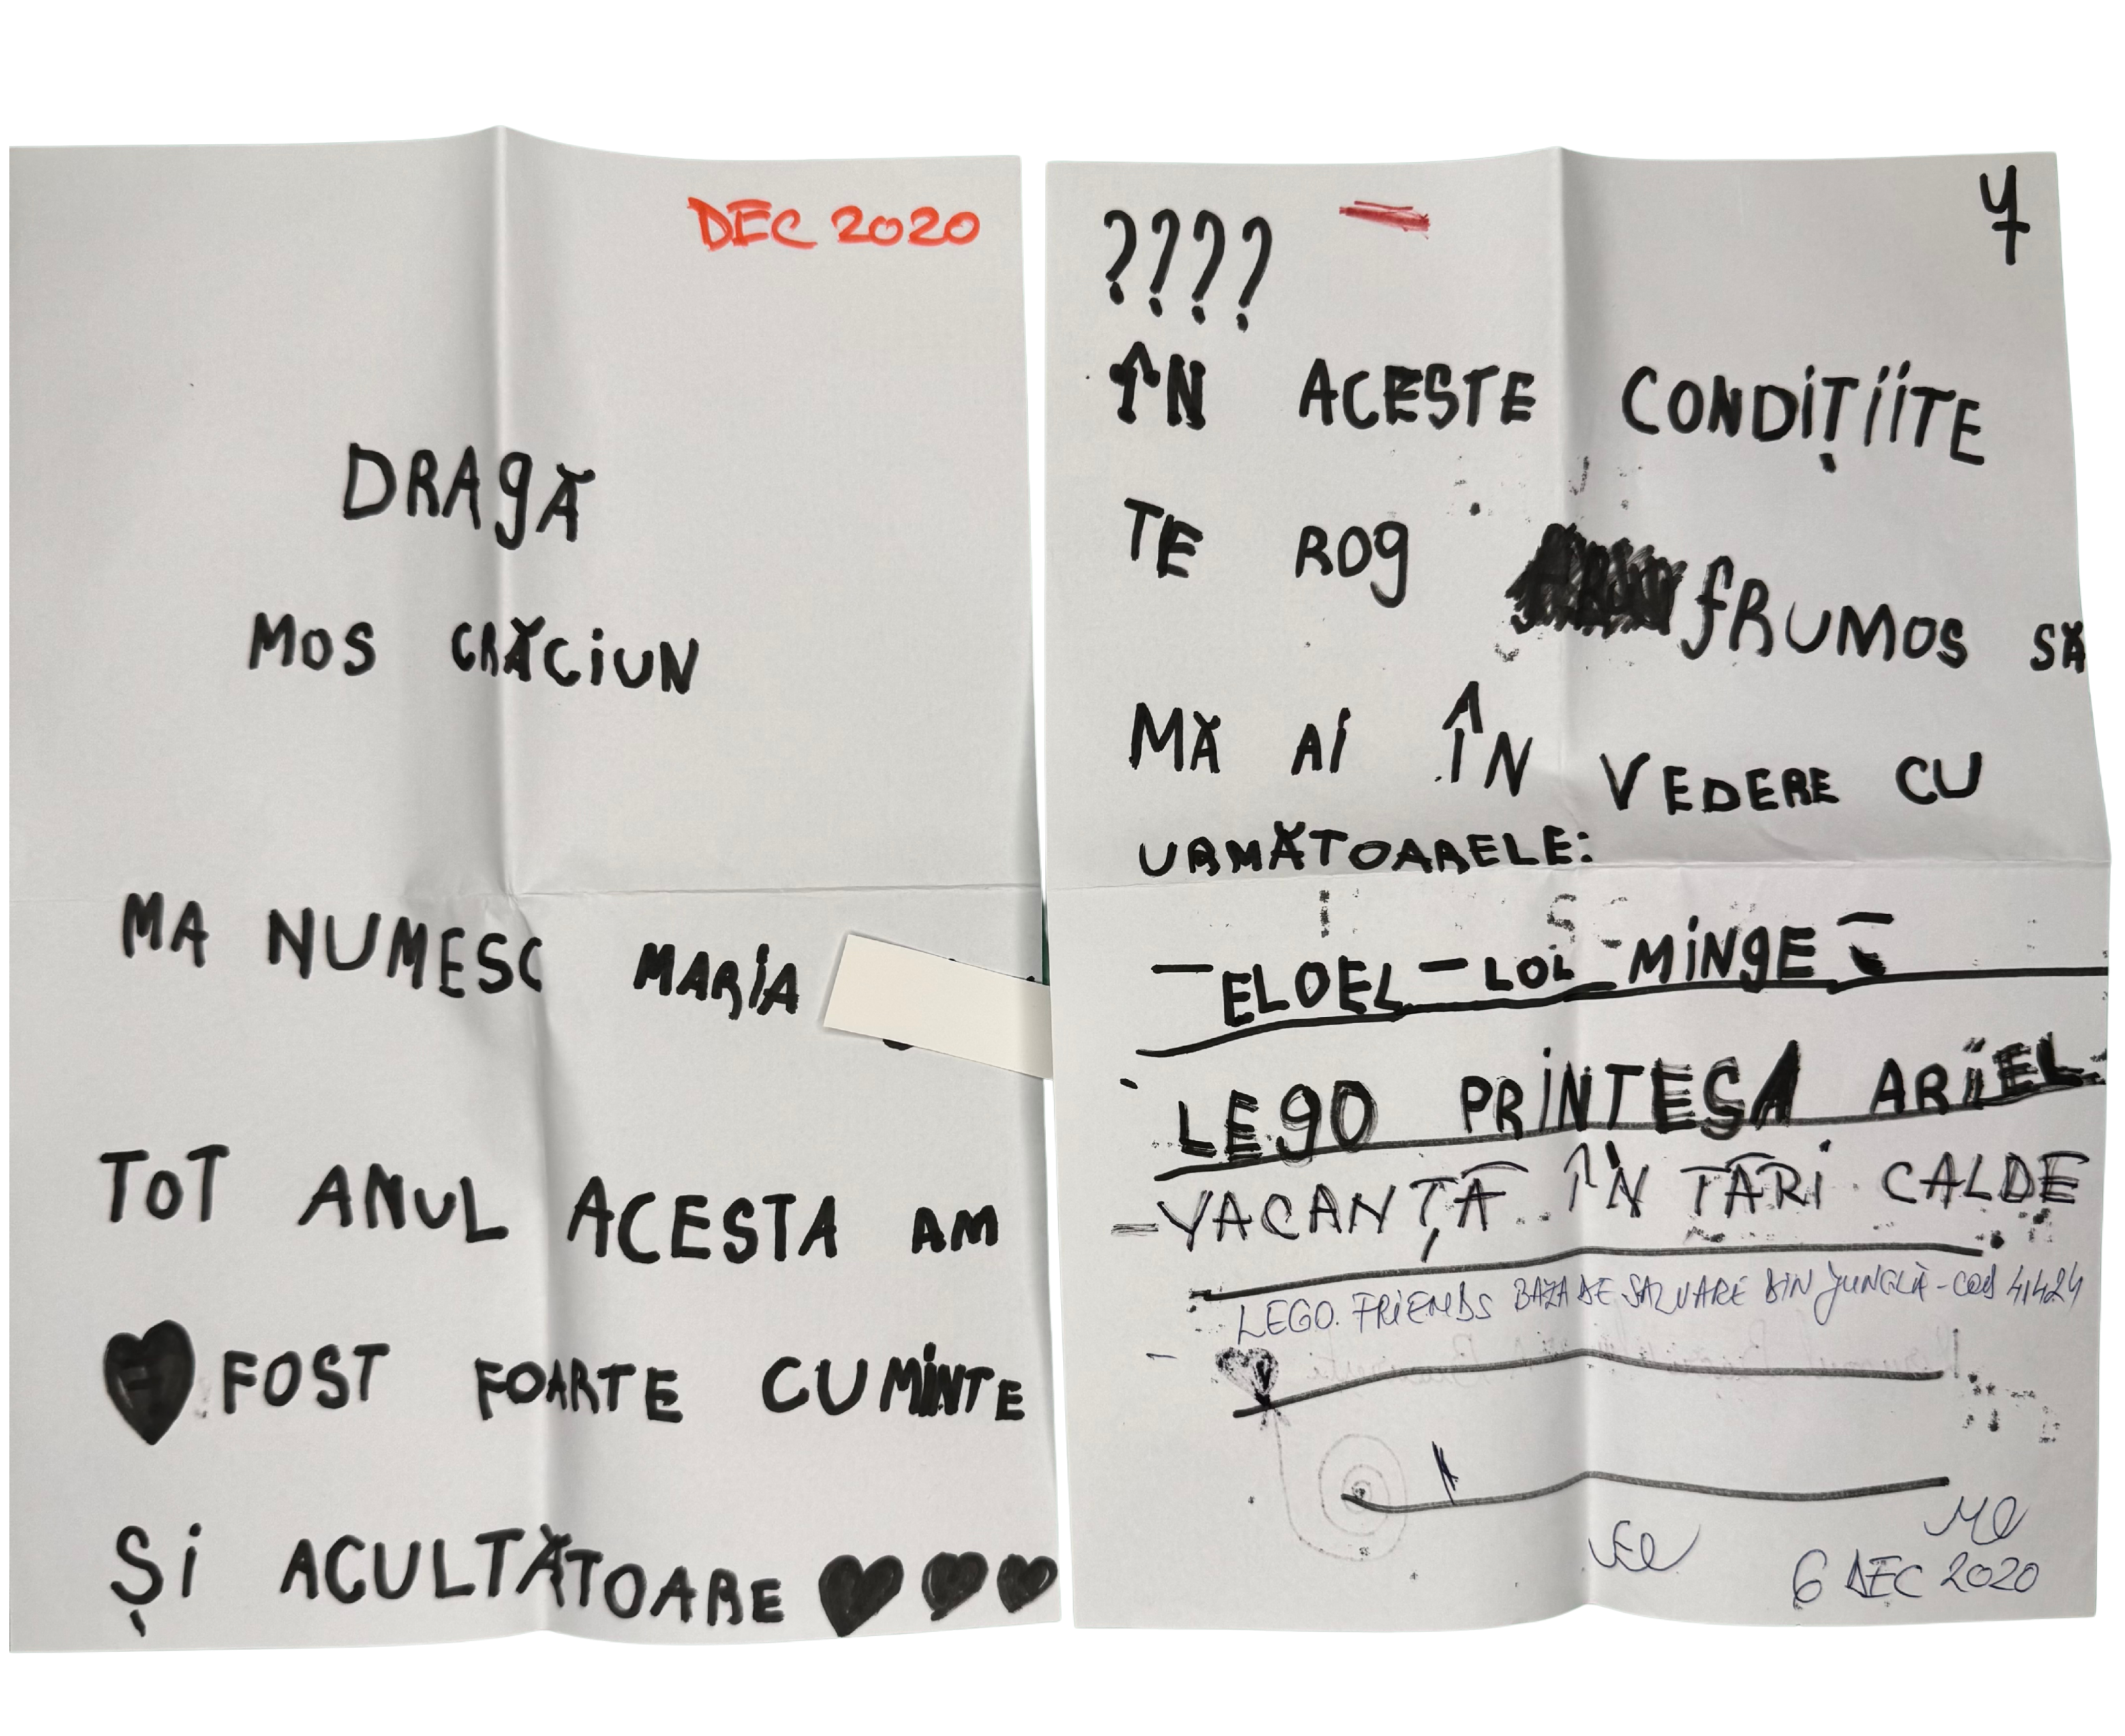 DEC 2020
DRAGĂ
MOS CRĂCIUN
MA NUMESC MARIA
TOT ANUL ACESTA AM
FOST FOARTE CUMINTE
ȘI ACULTĂTOARE
????
ÎN ACESTE CONDIȚIITE
TE ROG FRUMOS SĂ
MĂ AI ÎN VEDERE CU
URMĂTOARELE:
- ELOEL - LOL - MINGE -
LEGO PRINTESA ARIEL
- VACANȚĂ ÎN TĂRI CALDE
LEGO FRIENDS BAZA DE SALVARE DIN JUNGLĂ - COD 41424
6 DEC 2020